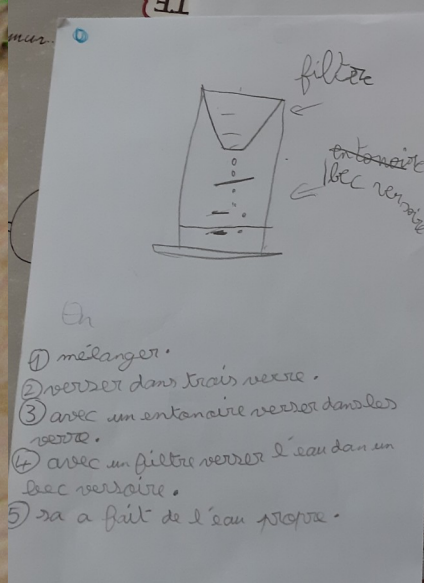 TE
mur.
filtre
entonoire
bec versoire
En
① mélanger.
② verser dans trais verre.
③ avec un entonoire verser dans les
verre.
④ avec un filtre verser l'eau dan un
bec versoire.
⑤ sa a fait de l'eau propre.